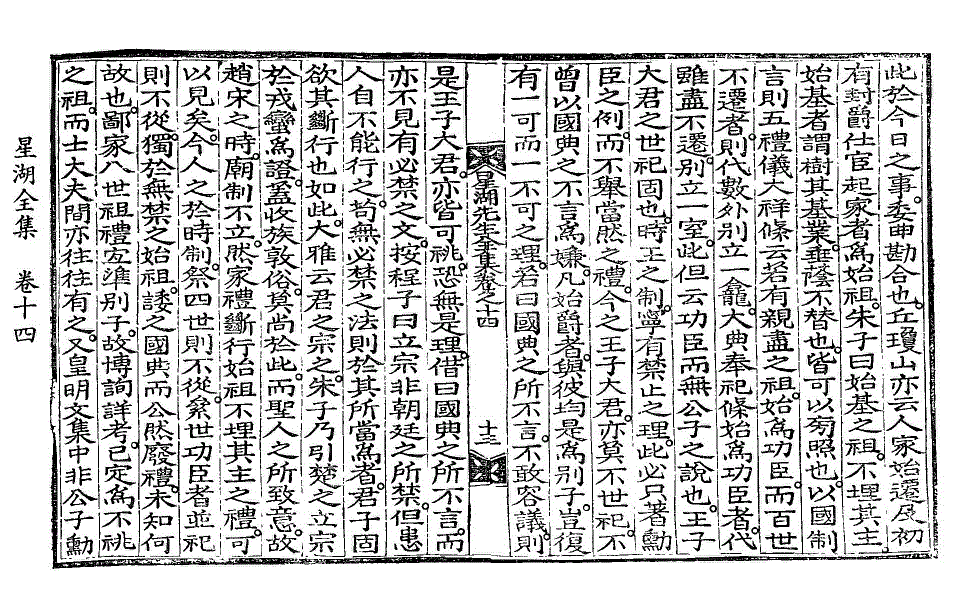 此於今日之事。委曲勘合也。丘瓊山亦云人家始遷及初
有封爵仕宦起家者為始祖。朱子曰始基之祖。不埋其主。
始基者謂樹其基業。垂蔭不替也。皆可以旁照也。以國制
言則五禮儀大祥條云若有親盡之祖。始為功臣。而百世
不遷者。則代數外別立一龕。大典奉祀條始為功臣者。代
雖盡不遷。別立一室。此但云功臣而無公子之說也。王子
大君之世祀固也。時王之制。寧有禁止之理。此必只著勳
臣之例。而不舉當然之禮。今之王子大君。亦莫不世祀。不
曾以國典之不言為嫌。凡始爵者。與彼均是為別子。豈復
有一可而一不可之理。若曰國典之所不言。不敢容議。則
星湖先生全集卷之十四
十三
是王子大君。亦皆可祧。恐無是理。借曰國典之所不言。而
亦不見有必禁之文。按程子曰立宗非朝廷之所禁。但患
人自不能行之。苟無必禁之法則於其所當為者。君子固
欲其斷行也如此。大雅云君之宗之。朱子乃引楚之立宗
於戎蠻為證。蓋收族敦俗。莫尚於此。而聖人之所致意。故
趙宋之時。廟制不立。然家禮斷行始祖不埋其主之禮。可
以見矣。今人之於時制。祭四世則不從。累世功臣者並祀
則不從。獨於無禁之始祖。諉之國典而公然廢禮。未知何
故也。鄙家八世祖禮宜準別子。故博詢詳考。已定為不祧
之祖。而士大夫間亦往往有之。又皇明文集中非公子勳
星湖全集 卷十四